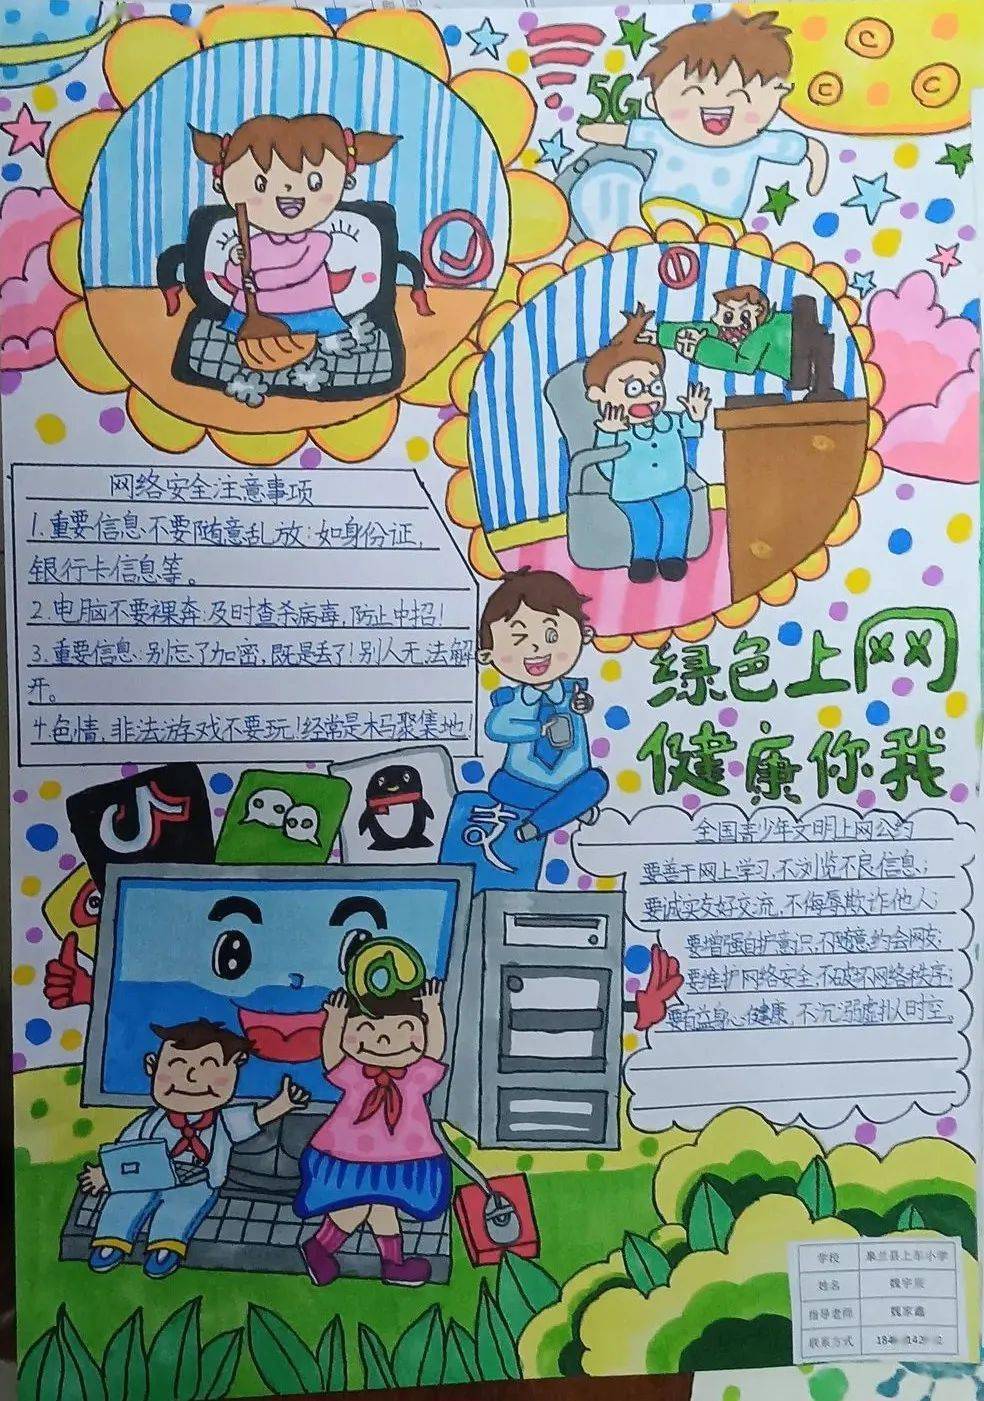 5G
网络安全注意事项
1.重要信息不要随意乱放:如身份证,
银行卡信息等。
2.电脑不要裸奔:及时查杀病毒,防止中招!
3.重要信息:别忘了加密,既是丢了!别人无法解
开。
4.色情,非法游戏不要玩!经常是木马聚集地!
绿色上网
健康你我
全国青少年文明上网公约
要善于网上学习,不浏览不良信息;
要诚实友好交流,不侮辱欺诈他人;
要增强自护意识,不随意约会网友;
要维护网络安全,不破坏网络秩序;
要有益身心健康,不沉溺虚拟时空。
学校 皋兰县上车小学
姓名 魏宇辰
指导老师 魏家鑫
联系方式